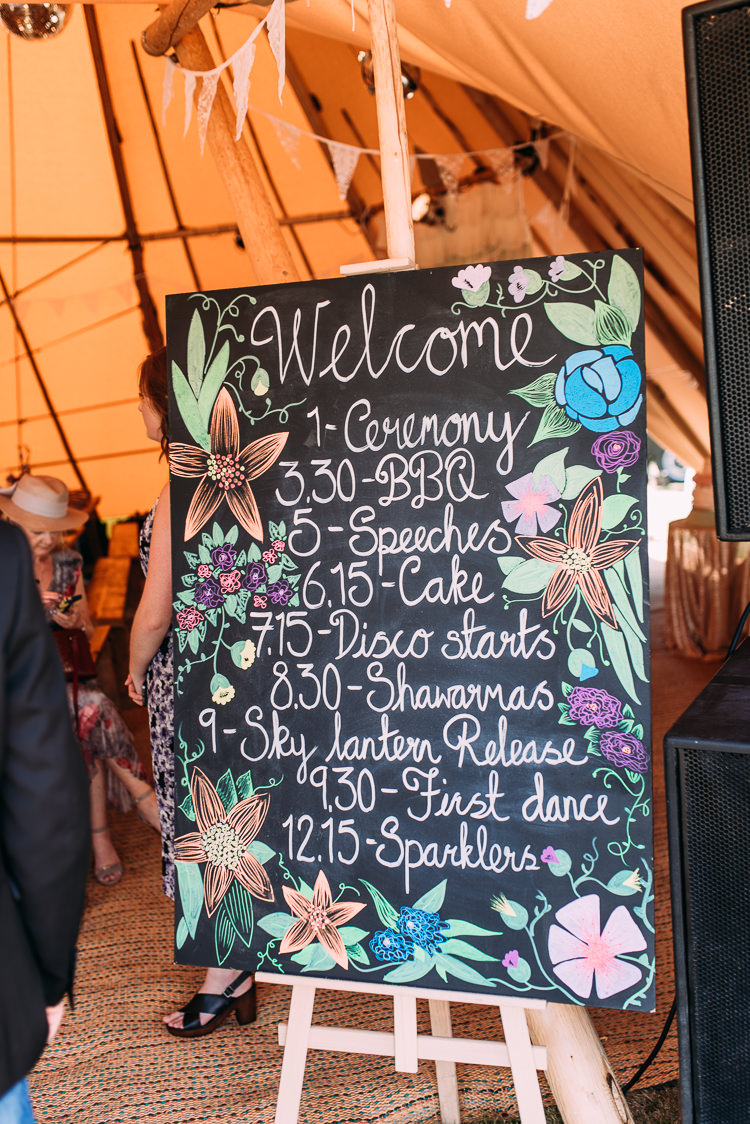 Welcome
1-Ceremony
3.30-BBQ
5-Speeches
6.15-Cake
7.15-Disco starts
8.30-Shawarmas
9-Sky lantern Release
9.30-First dance
12.15-Sparklers